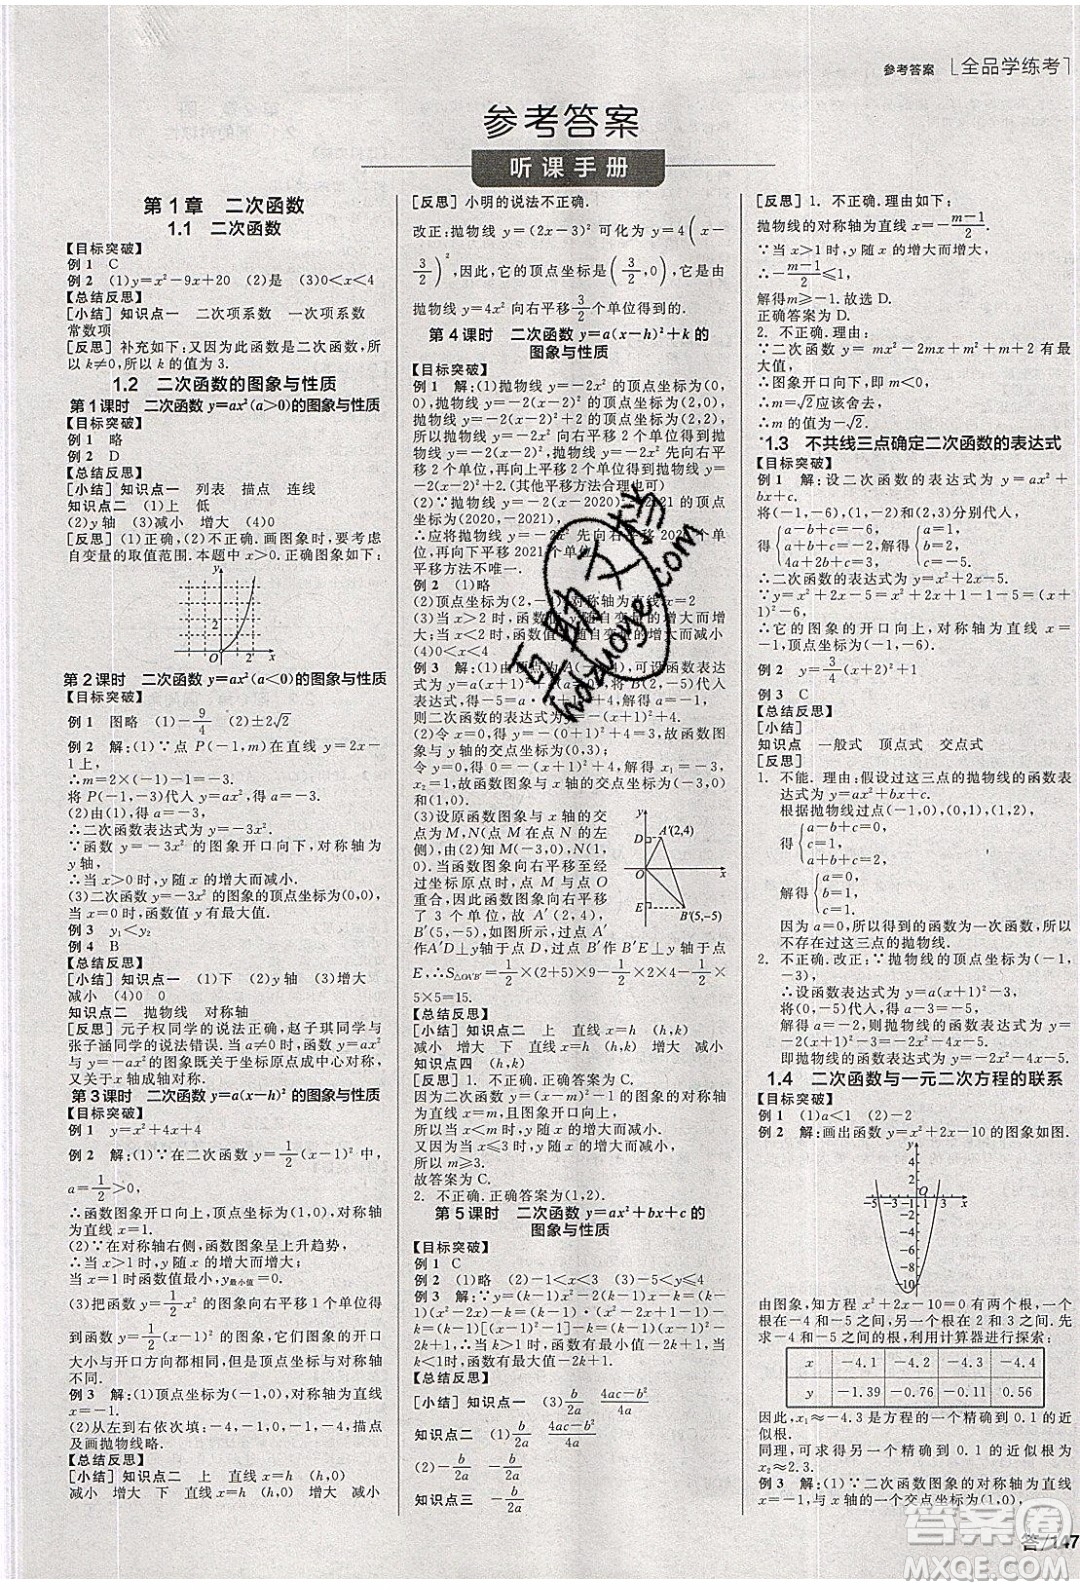 参考答案 [全品学练考]
参考答案
听课手册
第1章 二次函数
1.1 二次函数
【目标突破】
例1 C
例2 (1)y=x²-9x+20 (2)是 (3)0<x<4
【总结反思】
[小结] 知识点一 二次项系数 一次项系数
常数项
[反思] 补充如下:又因为此函数是二次函数,所
以k≠0,所以k的值为3.
1.2 二次函数的图象与性质
第1课时 二次函数y=ax²(a>0)的图象与性质
【目标突破】
例1 略
例2 D
【总结反思】
[小结] 知识点一 列表 描点 连线
知识点二 (1)上 低
(2)y轴 (3)减小 增大 (4)0
[反思] (1)不正确. (2)不正确. 画图象时,要考虑
自变量的取值范围. 本题中x>0. 正确图象如下:
y
2
O 2 x
第2课时 二次函数y=ax²(a<0)的图象与性质
【目标突破】
例1 图略 (1)-9/4 (2)±2√2
例2 解:(1)∵点P(-1,m)在直线y=2x-
1上,
∴m=2×(-1)-1=-3.
将P(-1,-3)代入y=ax²,得a=-3.
(2)由(1)得a=-3,
∴二次函数表达式为y=-3x².
∵y=-3x²的图象开口向下,对称轴为
y轴,
∴当x<0时,y随x的增大而增大.
(3)二次函数y=-3x²的图象的顶点坐标为(0,0),
当x=0时,y有最大值.
例3 y₁<y₂
例4 B
【总结反思】
[小结] 知识点一 (1)下 (2)y轴 (3)增大
减小 (4)0 0
知识点二 抛物线 对称轴
[反思] 元子权同学的说法正确,赵子琪同学与
张子涵同学的说法错误. 当a≠0时,抛物线y=ax²
与y=-ax²的图象既关于坐标原点成中心对称,
又关于x轴成轴对称.
第3课时 二次函数y=a(x-h)²的图象与性质
【目标突破】
例1 y=x²+4x+4
例2 解:(1)∵在二次函数y=1/2(x-1)²中,
a=1/2>0,
∴函数图象开口向上,顶点坐标为(1,0),对称轴
为直线x=1.
(2)∵在对称轴右侧,函数图象呈上升趋势,
∴当x>1时,y随x的增大而增大;
当x=1时函数值最小,y最小值=0.
(3)把函数y=1/2x²的图象向右平移1个单位得
到函数y=1/2(x-1)²的图象,它们的图象的开口
大小与开口方向都相同,但顶点坐标与对称轴
不同.
例3 解:(1)顶点坐标为(1,0),对称轴为直线
x=1.
(2)从左到右依次填:-4,-1,0,-1,-4,描点
及画抛物线略.
【总结反思】
[小结] 知识点二 上 直线x=h (h,0)
减小 增大 下 直线x=h (h,0) 增大 减小
[反思] 小明的说法不正确.
改正:抛物线y=(2x-3)²可化为y=4(x-
3/2)²,因此,它的顶点坐标为(3/2,0),是由
抛物线y=4x²向右平移3/2个单位得到的.
第4课时 二次函数y=a(x-h)²+k的
图象与性质
【目标突破】
例1 解:(1)抛物线y=-2x²的顶点坐标为(0,
0),抛物线y=-2(x-2)²的顶点坐标为(2,0),
抛物线y=-2(x-2)²+2的顶点坐标为(2,2),
所以抛物线y=-2x²向右平移2个单位得到抛物
线y=-2(x-2)²,再向上平移2个单位得到抛物
线y=-2(x-2)²+2. (其他平移方法合理也可)
(2)∵抛物线y=-2(x-2020)²-2021的顶点
坐标为(2020,-2021),
∴应将抛物线y=-2x²先向右平移2020个单位,
再向下平移2021个单位.
平移方法不唯一.
例2 (1)略
(2)顶点坐标为(2,-1),对称轴为直线x=2
(3)当x>2时,函数值y随自变量的增大而增大;
当x<2时,函数值y随自变量的增大而减小
例3 解:(1)由顶点为A(-1,4),可设函数表达
式为y=a(x+1)²+4(a≠0),将B(2,-5)代
入,得-5=a(2+1)²+4,解得a=-1,
则二次函数的表达式为y=-(x+1)²+4.
(2)令x=0,得y=-(0+1)²+4=3,故函数图
象与y轴的交点坐标为(0,3);
令y=0,得0=-(x+1)²+4,解得x₁=-3,
x₂=1,故函数图象与x轴的交点坐标为(-3,0)
和(1,0).
(3)设原函数图象与x轴的交
点为M,N(点M在点N的左
侧),由(2)知M(-3,0),N(1,
0),当函数图象向右平移至经过
坐标原点时,点M与点O
重合,因此函数图象向右平移
了3个单位,故A′(2,4),
B′(5,-5),如图所示,过点
A′作A′D⊥y轴于点D,过点B′作B′E⊥y轴于点
E,∴S△OA′B′=1/2×(2+5)×9-1/2×2×4-1/2×
5×5=15.
y
D A′(2,4)
O x
E B′(5,-5)
【总结反思】
[小结] 知识点二 上 直线x=h (h,k)
减小 增大 下 直线x=h (h,k) 增大 减小
知识点四 (h,k)
[反思] 1. 不正确. 理由如下:
因为二次函数y=(x-m)²-1的图象的对称轴为
直线x=m,图象开口向上,
所以当x>m时,y随x的增大而增大.
又因为当x>3时,y随x的增大而增大,
所以m≤3.
故答案为C.
2. 不正确. 正确答案为(1,2).
第5课时 二次函数y=ax²+bx+c的
图象与性质
【目标突破】
例1 C
例2 (1)略 (2)-1<x<3 (3)-5<y<4
例3 解:∵y=(k-1)x²-2(k-1)x-k=
(k-1)(x²-2x)-k=(k-1)(x²-2x+1-1)-
k=(k-1)[(x-1)²-1]-k=(k-1)(x-1)²-
2k+1,∴当k>1时,函数有最小值-2k+1;
当k<1时,函数有最大值-2k+1.
【总结反思】
[小结] 知识点一 (3)-b/2a (4ac-b²)/4a
知识点二 (1)-b/2a (4ac-b²)/4a
(2)-b/2a -b/2a
知识点三 -b/2a
[反思] 1. 不正确. 理由如下:
抛物线的对称轴为直线x=-(m-1)/2.
∵当x>1时,y随x的增大而增大,
∴-(m-1)/2≤1,
解得m≥-1. 故选D.
正确答案为D.
2. 不正确. 理由:
∵二次函数y=mx²-2x-m²+3有最
大值,
∴图象开口向下,即m<0.
∴m=√2应该舍去,
∴m的值为-√2.
*1.3 不共线三点确定二次函数的表达式
【目标突破】
例1 解:设二次函数的表达式为y=ax²+
bx+c.
将(-1,-6),(1,-2)和(2,3)分别代入,
得{a-b+c=-6, a+b+c=-2, 4a+2b+c=3, 解得{a=1, b=2, c=-5.
∴二次函数的表达式为y=x²+2x-5.
∵y=x²+2x-5=(x+1)²-6,
∴它的图象的开口向上,对称轴为直线x=
-1,顶点坐标为(-1,-6).
例2 y=3/4(x+2)²-1
例3 C
【总结反思】
[小结]
知识点 一般式 顶点式 交点式
[反思]
1. 不能. 理由:假设过这三点的抛物线的函数表
达式为y=ax²+bx+c.
根据抛物线过点(-1,0),(0,1),(1,2),
得{a-b+c=0, c=1, a+b+c=2.
解得{a=0, b=1, c=1.
因为a=0,所以得到的函数不是二次函数,故
不存在经过这三点的抛物线.
2. 不正确. 改正:∵抛物线的顶点坐标为(-1,
-3),
∴设函数表达式为y=a(x+1)²-3,
将(0,-5)代入y=a(x+1)²-3,
得a=-2,则抛物线的函数表达式为y=
-2(x+1)²-3=-2x²-4x-5.
即抛物线的函数表达式为y=-2x²-4x-5.
1.4 二次函数与一元二次方程的联系
【目标突破】
例1 (1)a<1 (2)-2
例2 解:画出函数y=x²+2x-10的图象如图.
y
O
-5 -3 -1 1 3 x
-4
-6
-8
-10
由图象,知方程x²+2x-10=0有两个根,一个
在-4和-5之间,另一个在2和3之间. 先
求-4和-5之间的根,利用计算器进行探索:
x -4.1 -4.2 -4.3 -4.4
y -1.39 -0.76 -0.11 0.56
因此,x₁≈-4.3是方程的一个精确到0.1的近
似根.
同理,可求得另一个精确到0.1的近似根为
x₂≈2.3.
例3 解:(1)∵二次函数图象的对称轴为直线
x=-1,且图象与x轴的一个交点坐标为(1,0),
答/147
互助文档
hdzuoye.com
答案圈
MXQE.COM